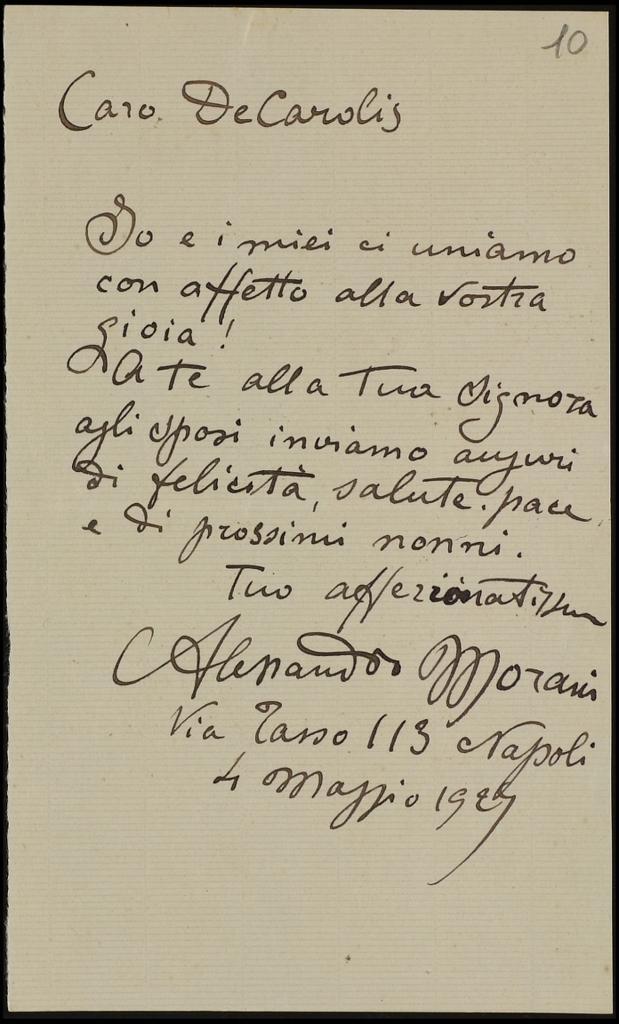 10
Caro De Carolis
Io e i miei ci uniamo
con affetto alla vostra
gioia!
A te alla Tua Signora
agli sposi inviamo auguri
di felicità, salute. pace
e di prossimi nonni.
Tuo affezionatissimo
Alessandro Morani
Via Tasso 113 Napoli
4 Maggio 1927